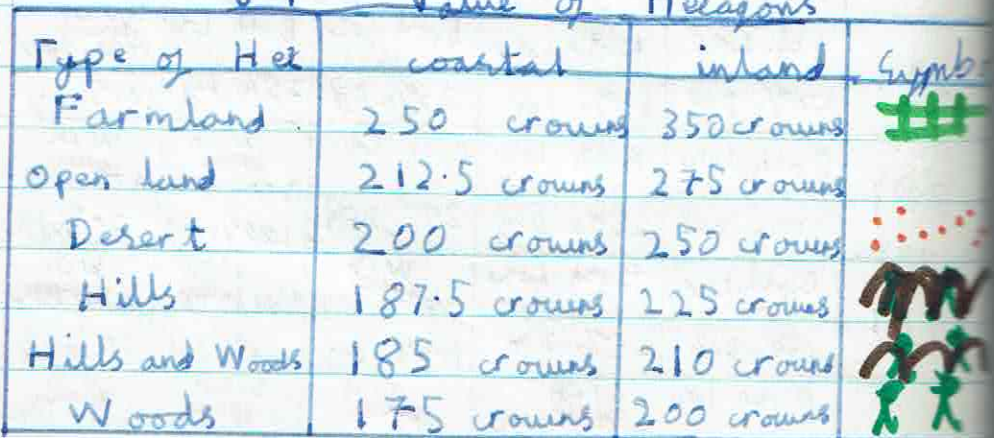 Value of Hexagons
Type of Hex coastal inland Symb
Farmland 250 crowns 350 crowns
Open land 212.5 crowns 275 crowns
Desert 200 crowns 250 crowns
Hills 187.5 crowns 225 crowns
Hills and Woods 185 crowns 210 crowns
Woods 175 crowns 200 crowns